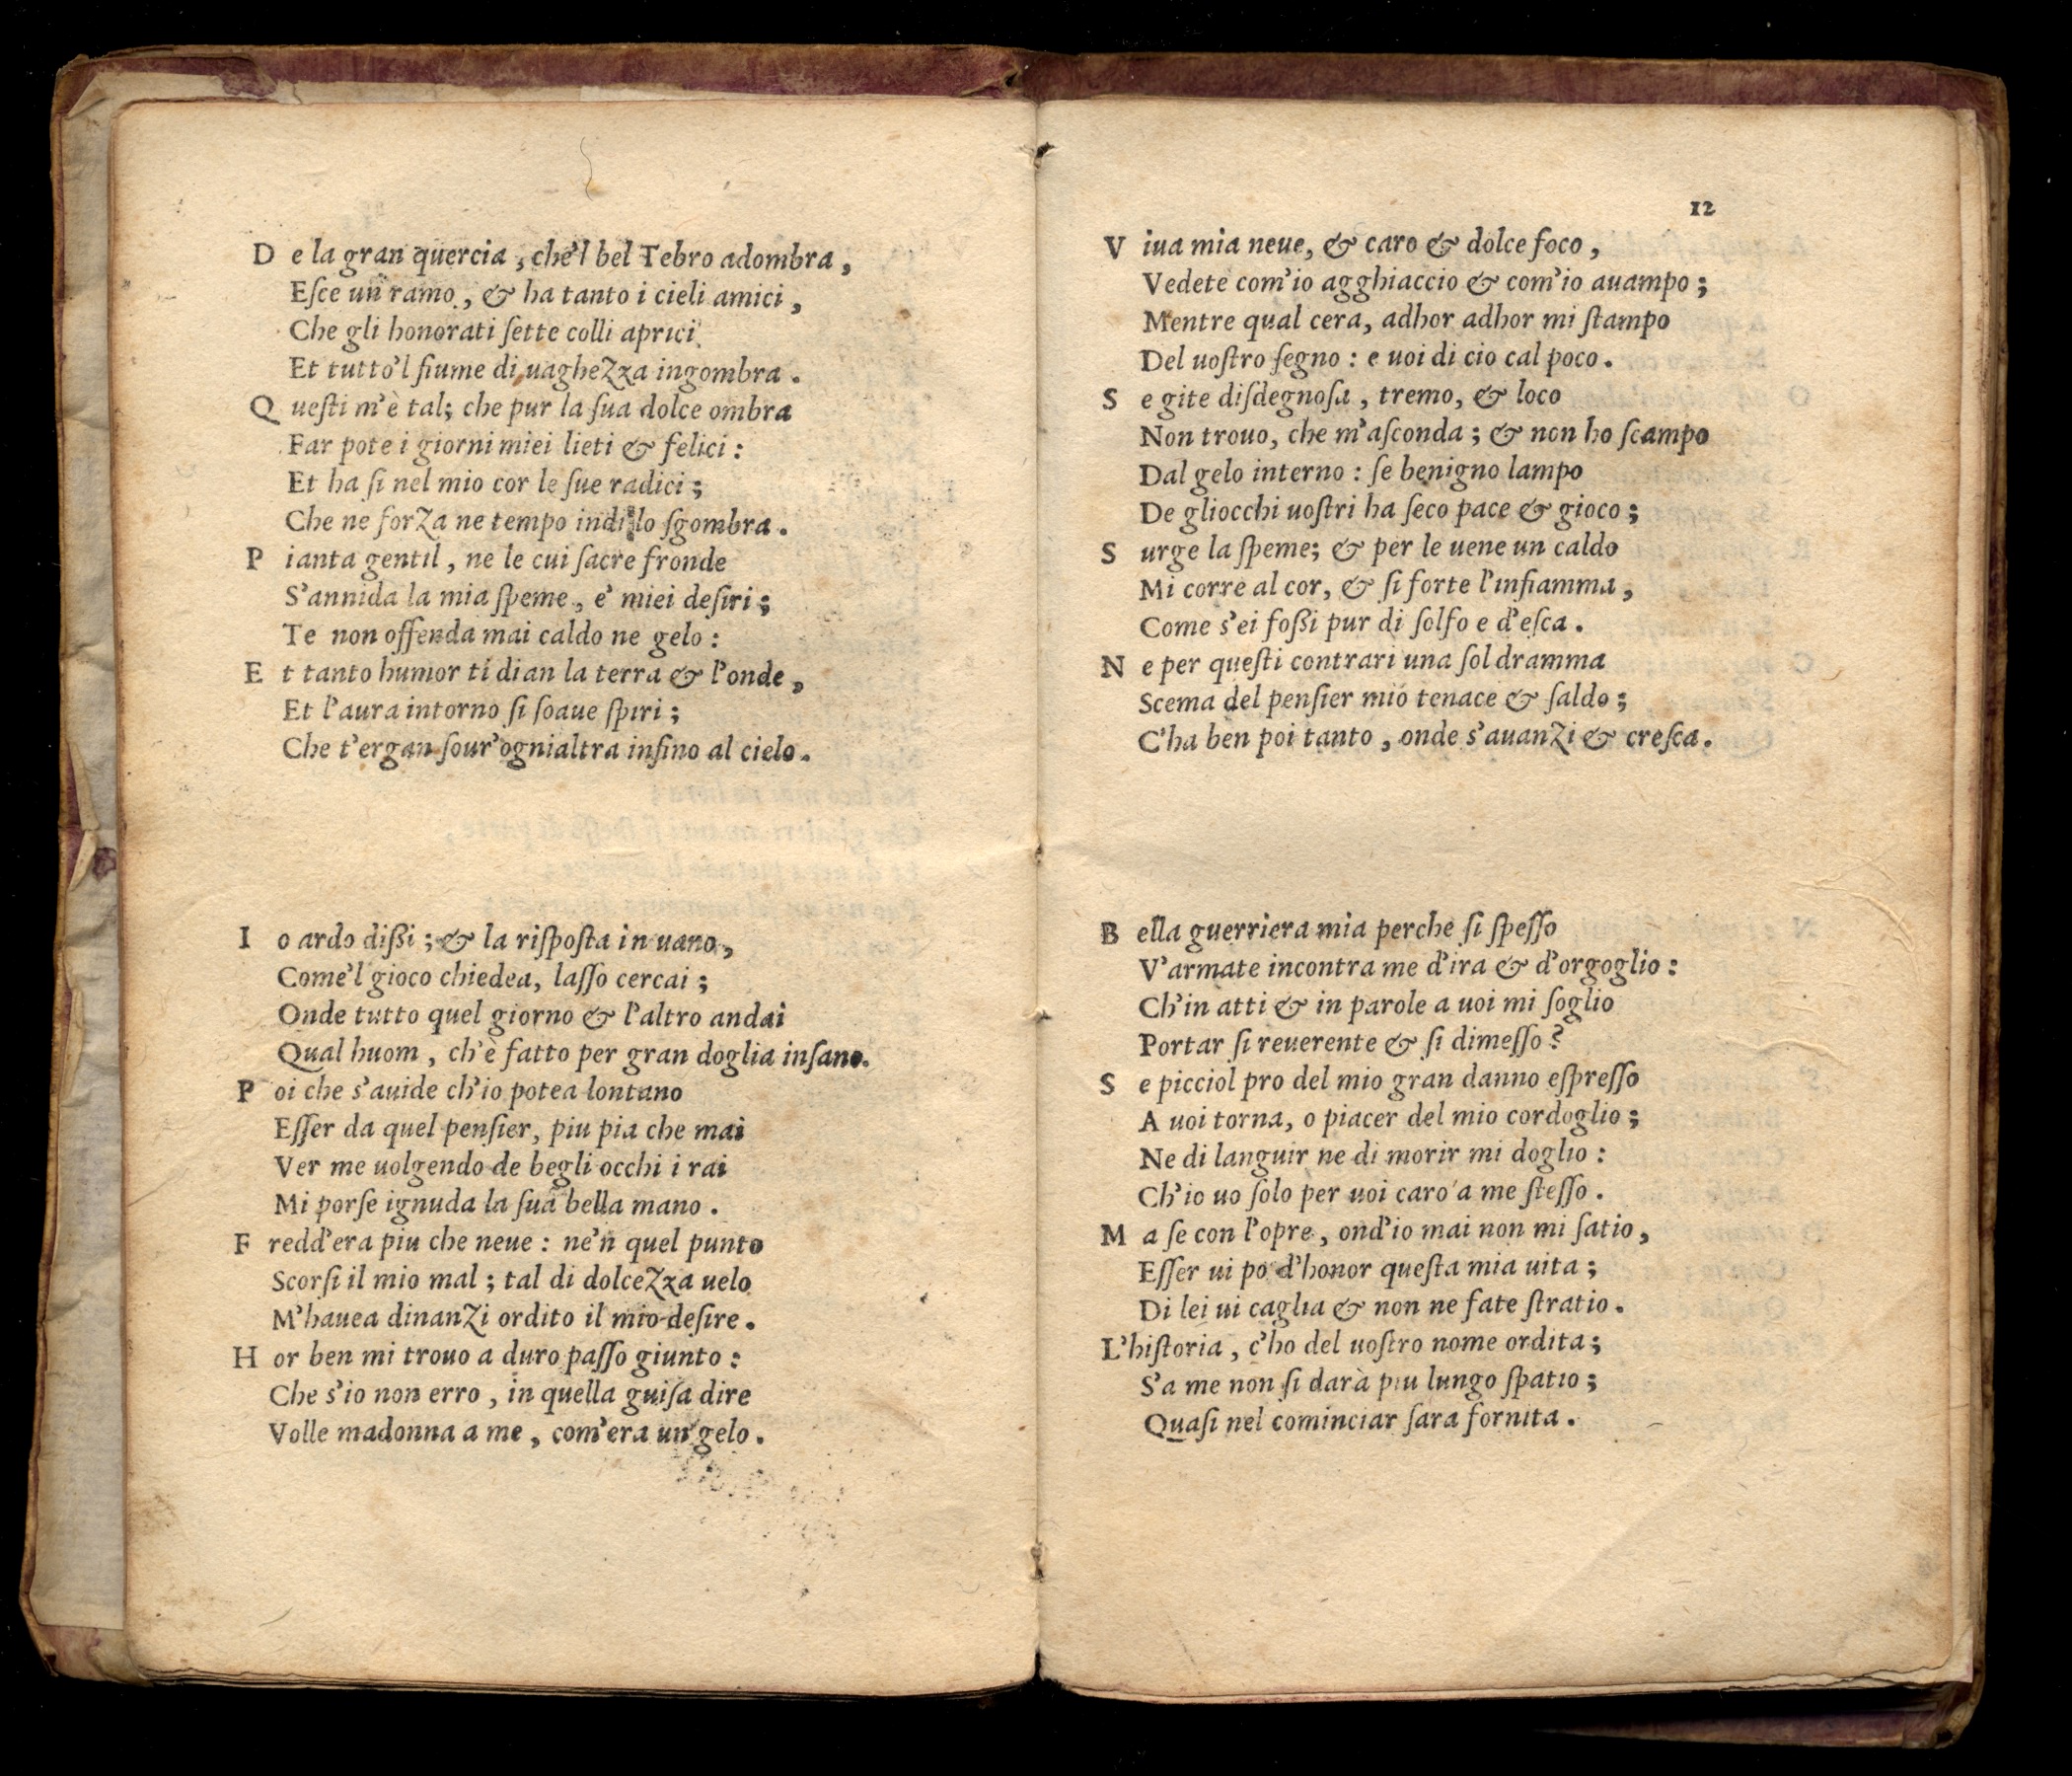 D e la gran quercia, che'l bel Tebro adombra,
Eſce un ramo, & ha tanto i cieli amici,
Che gli honorati ſette colli aprici
Et tutto'l fiume di uaghezza ingombra.
Q ueſti m'è tal; che pur la ſua dolce ombra
Far pote i giorni miei lieti & felici:
Et ha ſi nel mio cor le ſue radici;
Che ne forza ne tempo indi lo ſgombra.
P ianta gentil, ne le cui ſacre fronde
S'annida la mia ſpeme, e' miei deſiri;
Te non offenda mai caldo ne gelo:
E t tanto humor ti dian la terra & l'onde,
Et l'aura intorno ſi ſoaue ſpiri;
Che t'ergan ſour'ognialtra inſino al cielo.
I o ardo dißi; & la riſpoſta in uano,
Come'l gioco chiedea, laſſo cercai;
Onde tutto quel giorno & l'altro andai
Qual huom, ch'è fatto per gran doglia inſano.
P oi che s'auide ch'io potea lontano
Eſſer da quel penſier, piu pia che mai
Ver me uolgendo de begli occhi i rai
Mi porſe ignuda la ſua bella mano.
F redd'era piu che neue: ne'n quel punto
Scorſi il mio mal; tal di dolcezza uelo
M'hauea dinanzi ordito il mio deſire.
H or ben mi trouo a duro paſſo giunto:
Che s'io non erro, in quella guiſa dire
Volle madonna a me, com'era un gelo.
12
V iua mia neue, & caro & dolce foco,
Vedete com'io agghiaccio & com'io auampo;
Mentre qual cera, adhor adhor mi ſtampo
Del uoſtro ſegno: e uoi di cio cal poco.
S e gite diſdegnoſa, tremo, & loco
Non trouo, che m'aſconda; & non ho ſcampo
Dal gelo interno: ſe benigno lampo
De gliocchi uoſtri ha ſeco pace & gioco;
S urge la ſpeme; & per le uene un caldo
Mi corre al cor, & ſi forte l'infiamma,
Come s'ei foßi pur di ſolfo e d'eſca.
N e per queſti contrari una ſol dramma
Scema del penſier mio tenace & ſaldo;
C'ha ben poi tanto, onde s'auanzi & creſca.
B ella guerriera mia perche ſi ſpeſſo
V'armate incontra me d'ira & d'orgoglio:
Ch'in atti & in parole a uoi mi ſoglio
Portar ſi reuerente & ſi dimeſſo?
S e picciol pro del mio gran danno eſpreſſo
A uoi torna, o piacer del mio cordoglio;
Ne di languir ne di morir mi doglio:
Ch'io uo ſolo per uoi caro a me ſteſſo.
M a ſe con l'opre, ond'io mai non mi ſatio,
Eſſer ui po d'honor queſta mia uita;
Di lei ui caglia & non ne fate ſtratio.
L'hiſtoria, c'ho del uoſtro nome ordita;
S'a me non ſi darà piu lungo ſpatio;
Quaſi nel cominciar ſara fornita.